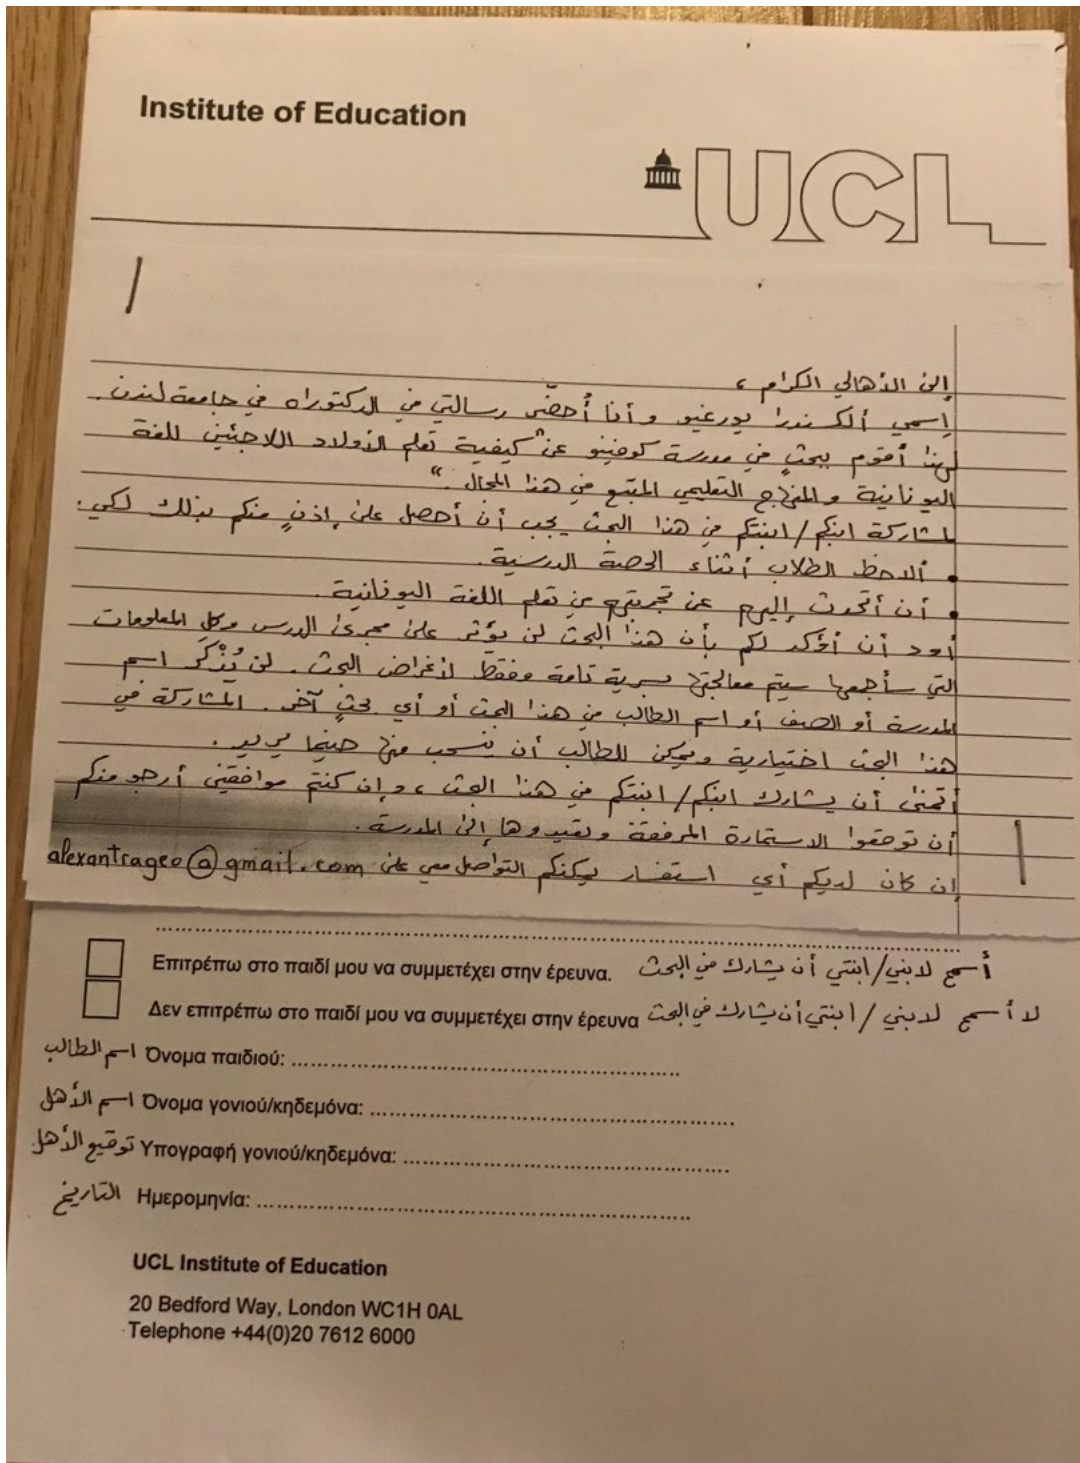 Institute of Education
UCL
إلى الأهالي الكرام ،
إسمي ألكسندرا يورغيو و أنا أُحضّر رسالتي في الدكتوراه في جامعة لندن.
لهذا أقوم ببحثٍ في مدرسة عن "كيفية تعلم الأولاد اللاجئين للغة
اليونانية و المنهاج التعليمي المتبع في هذا المجال"
لمشاركة ابنكم/ابنتكم في هذا البحث يجب أن أحصل على إذنٍ منكم بذلك لكي:
• ألاحظ الطلاب أثناء الحصة الدرسية.
• أن أتحدث إليهم عن تجربتهم في تعلم اللغة اليونانية.
أود أن أؤكد لكم بأن هذا البحث لن يؤثر على مجرى الدرس وكل المعلومات
التي سأجمعها سيتم معالجتها بسرية تامة وفقط لأغراض البحث. لن يُذْكَر اسم
المدرسة أو الصف أو اسم الطالب في هذا البحث أو أي بحثٍ آخر. المشاركة في
هذا البحث اختيارية ويمكن للطالب أن ينسحب منها حينما يريد.
أتمنى أن يشارك ابنكم/ابنتكم في هذا البحث، وإن كنتم موافقين أرجو منكم
أن توقعوا الاستمارة المرفقة وتعيدوها إلى المدرسة.
إن كان لديكم أي استفسار يمكنكم التواصل معي على alexantrageo@gmail.com
Επιτρέπω στο παιδί μου να συμμετέχει στην έρευνα. أسمح لابني/ابنتي أن يشارك في البحث
Δεν επιτρέπω στο παιδί μου να συμμετέχει στην έρευνα لا أسمح لابني/ابنتي أن يشارك في البحث
اسم الطالب Όνομα παιδιού: ........................................................
اسم الأهل Όνομα γονιού/κηδεμόνα: ........................................................
توقيع الأهل Υπογραφή γονιού/κηδεμόνα: ..................................................
التاريخ Ημερομηνία: ................................................................
UCL Institute of Education
20 Bedford Way, London WC1H 0AL
Telephone +44(0)20 7612 6000